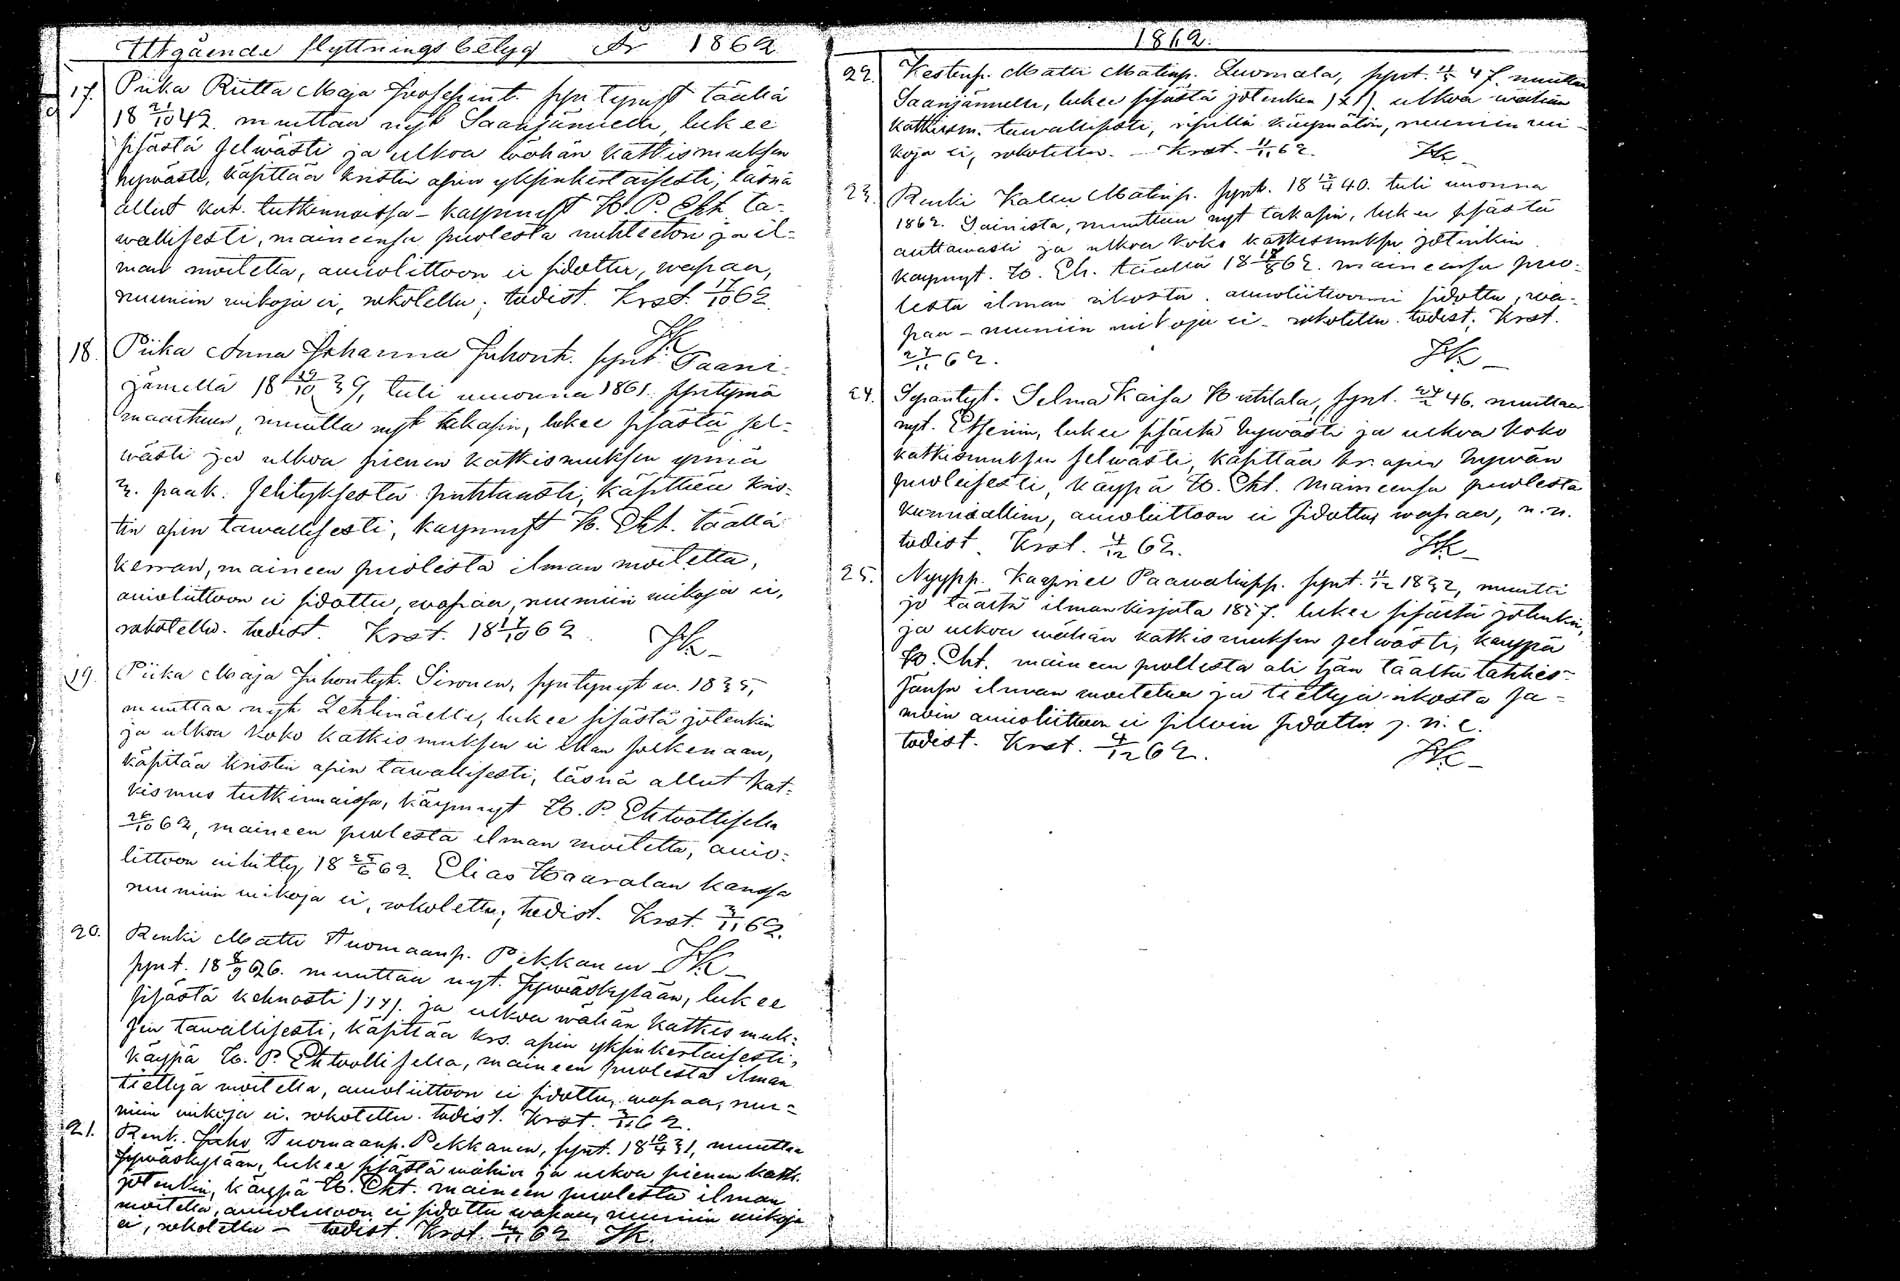 Utgående flyttnings betyg År 1862
17. Piika Riitta Maja Josefsint. syntynyt täällä
18 21/10 42. muuttaa nyt Saarijärvelle, lukee
sisästä selwästi ja ulkoa wähän katkismuksen
hywästi, käsittää kristin opin yksinkertaisesti, läsnä
ollut kat. tutkinnoissa - kaynnyt H. P. Eht. ta-
wallisesti, maineensa puolesta nuhteeton ja il-
man moitetta, awioliittoon ei sidottu, wapaa,
ruumiin wikoja ei, rokotettu; todist. Krst. 17/10 62.
HK
18. Piika Anna Johanna Juhont. synt. Saari-
järwellä 18 29/10 39, tuli wuonna 1861. syntymä
maastuun, muutta nyt takasin, lukee sisästä sel-
wästi ja ulkoa pienen katkismuksen ynnä
3. paak. selityksestä puhtaasti, käsittää kris-
tin opin tawallisesti, kaynnyt H. Eht. täällä
kerran, maineen puolesta ilman moitetta,
awioliittoon ei sidottu, wapaa, ruumiin wikoja ei,
rokotettu. todist. Krst. 18 17/10 62
HK
19. Piika Maja Juhontyt. Sironen, syntynyt w. 1835,
muuttaa nyt Lehtimäelle, lukee sisästä jotenkin
ja ulkoa koko katkismuksen ei ihan selkenaan,
käsitää kristin opin tawallisesti, läsnä ollut kat-
kismus tutkinnaissa, käynnyt H. P. Ehtoollisella
26/10 62, maineen puolesta ilman moitetta, awio-
littoon wihitty 18 25/6 62. Elias Haaralan kanssa
ruumiin wikoja ei, rokolettu; todist. Krst. 3/11 62.
20. Renki Matti Tuomaanp. Pekkanen HK
synt. 18 8/9 26. muuttaa nyt. Jywäskylään, lukee
sisästä kehnosti /xx/. ja ulkoa wähän katkismuk-
sen tawallisesti, käsittää krs. opin yksinkertaisesti,
käypä H. P. Ehtoollisella, maineen puolesta ilman
tiettyä moitetta, awioliittoon ei sidottu, wapaa, ruu-
miin wikoja ei. rokotettu. todist. Krst. 3/11 62.
21. Renk. Juho Tuomaanp. Pekkanen, synt. 18 10/4 31, muuttaa
Jywäskylään, lukee sisästä wähin ja ulkoa pienen katk.
jotenkin, käypä H. Eht. maineen puolesta ilman
moitetta, awioliittoon ei sidottu wapaa, ruumiin wikoja
ei, rokotettu - todist. Krst. 62 HK.
1862.
22. Kestinp. Matti Matinp. Luomala, synt. 11/5 47. muuttaa
Saarijärwelle, lukee sisästä jotenkin /x1/. ulkoa wähän
katkism. tawallisesti, ripillä käypmätön, ruumiin wi-
koja ei, rokotettu. - Krst. 11/11 62. HK
23. Renki Kalle Matinp. synt. 18 12/4 40. tuli wuonna
1862. Soinista, muuttaa nyt takasin, lukee sisästä
auttawasti ja ulkoa koko katkismuksen jotenkin
kaynnyt. H. Eh. täällä 18 18/8 62. maineensa puo-
lesta ilman rikosta. awioliittoonni sidottu, wa-
paa - ruumiin wikoja ei - rokotettu. todist; Krst.
27/11 62. HK
24. Sepäntyt. Selma Kaisa Huhtala, synt. 24/2 46. muuttaa
nyt. Etseriin, lukee sisästä hywästi ja ulkoa koko
katkismuksen selwästi, käsittää kr. opin hywän
puoleisesti, käypä H. Eht. maineensa puolesta
kunniallinen, awioliittoon ei sidottu wapaa, n.n.
todist. Krst. 4/12 62. HK
25. Nyypp. Kaspriel Paawalinp. synt. 11/12 1832, muutti
jo täältä ilman kirjota 1857. lukee sisästä jotenkin,
ja ulkoa wähän katkismuksen selwästi, kaypä
H. Eht. maineen puolesta oli hän täältä lähties-
sänsä ilman moitetta ja tiettyä rikosta sa-
moin awioliittoon ei silloin sidottu j. n. e.
todist. Krst. 4/12 62. HK